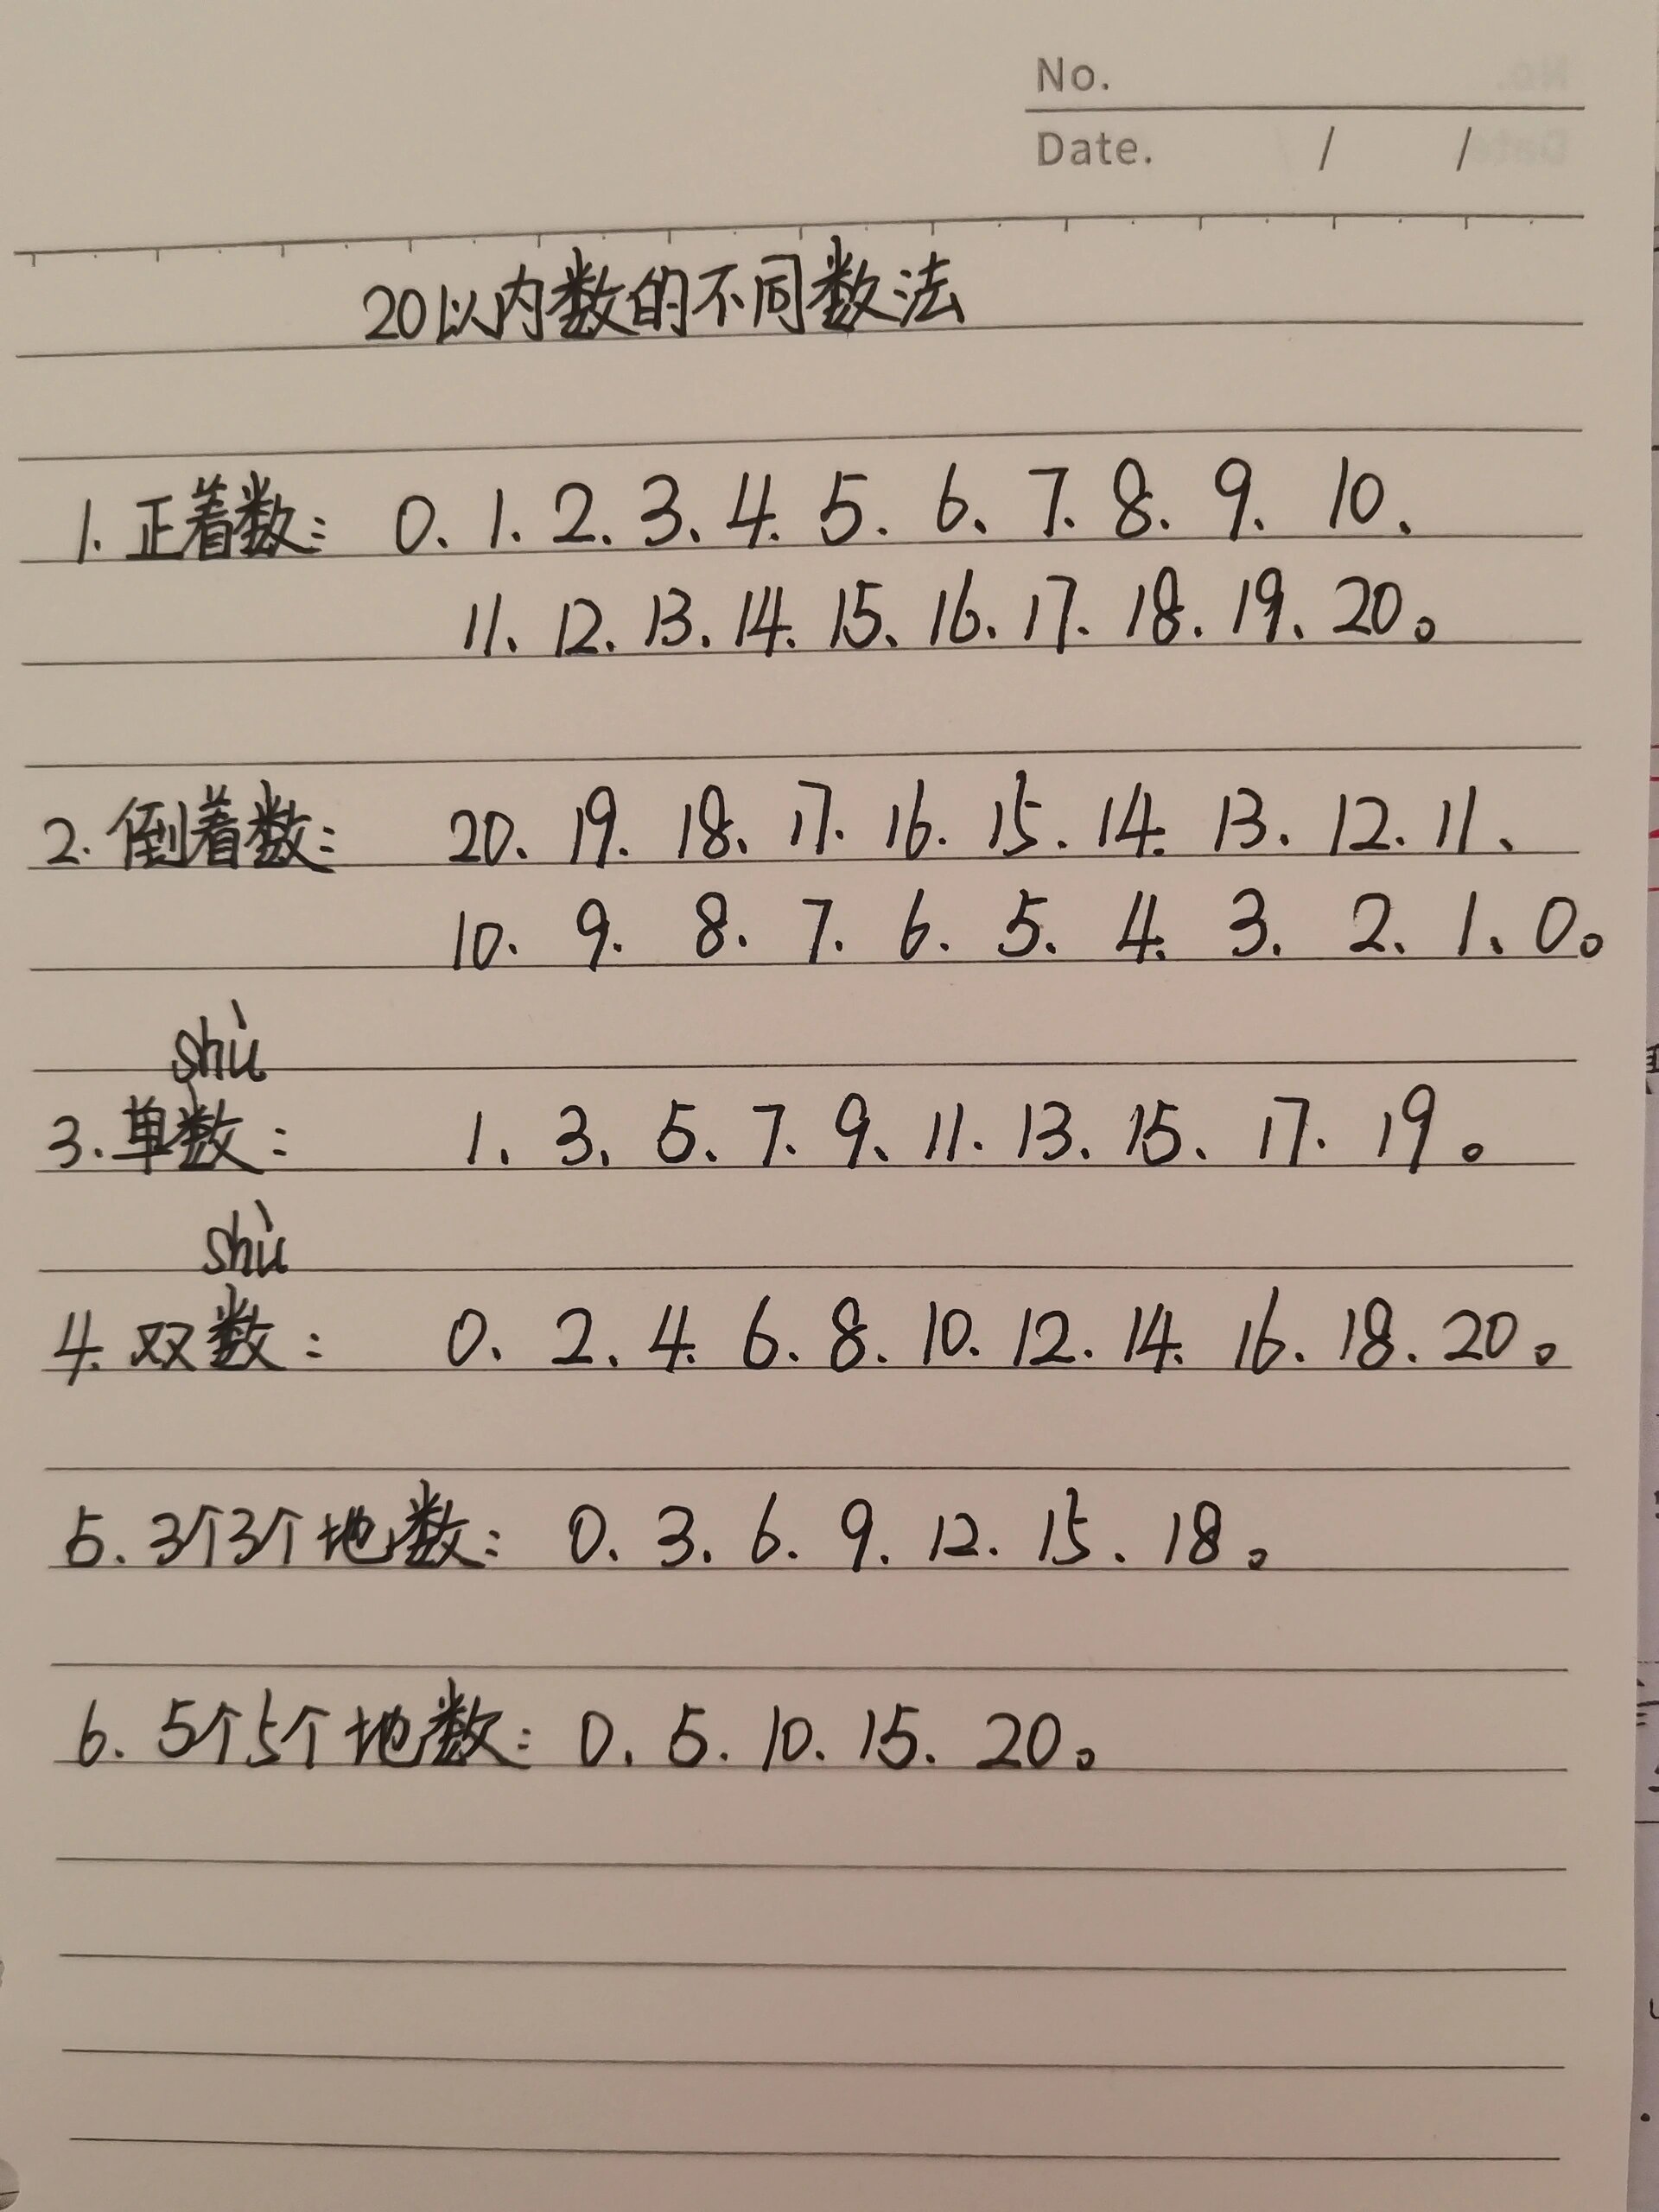 No.
Date. / /
20以内数的不同数法
1. 正着数: 0、1、2、3、4、5、6、7、8、9、10、
11、12、13、14、15、16、17、18、19、20。
2. 倒着数: 20、19、18、17、16、15、14、13、12、11、
10、9、8、7、6、5、4、3、2、1、0。
shù
3. 单数: 1、3、5、7、9、11、13、15、17、19。
shù
4. 双数: 0、2、4、6、8、10、12、14、16、18、20。
5. 3个3个地数: 0、3、6、9、12、15、18。
6. 5个5个地数: 0、5、10、15、20。